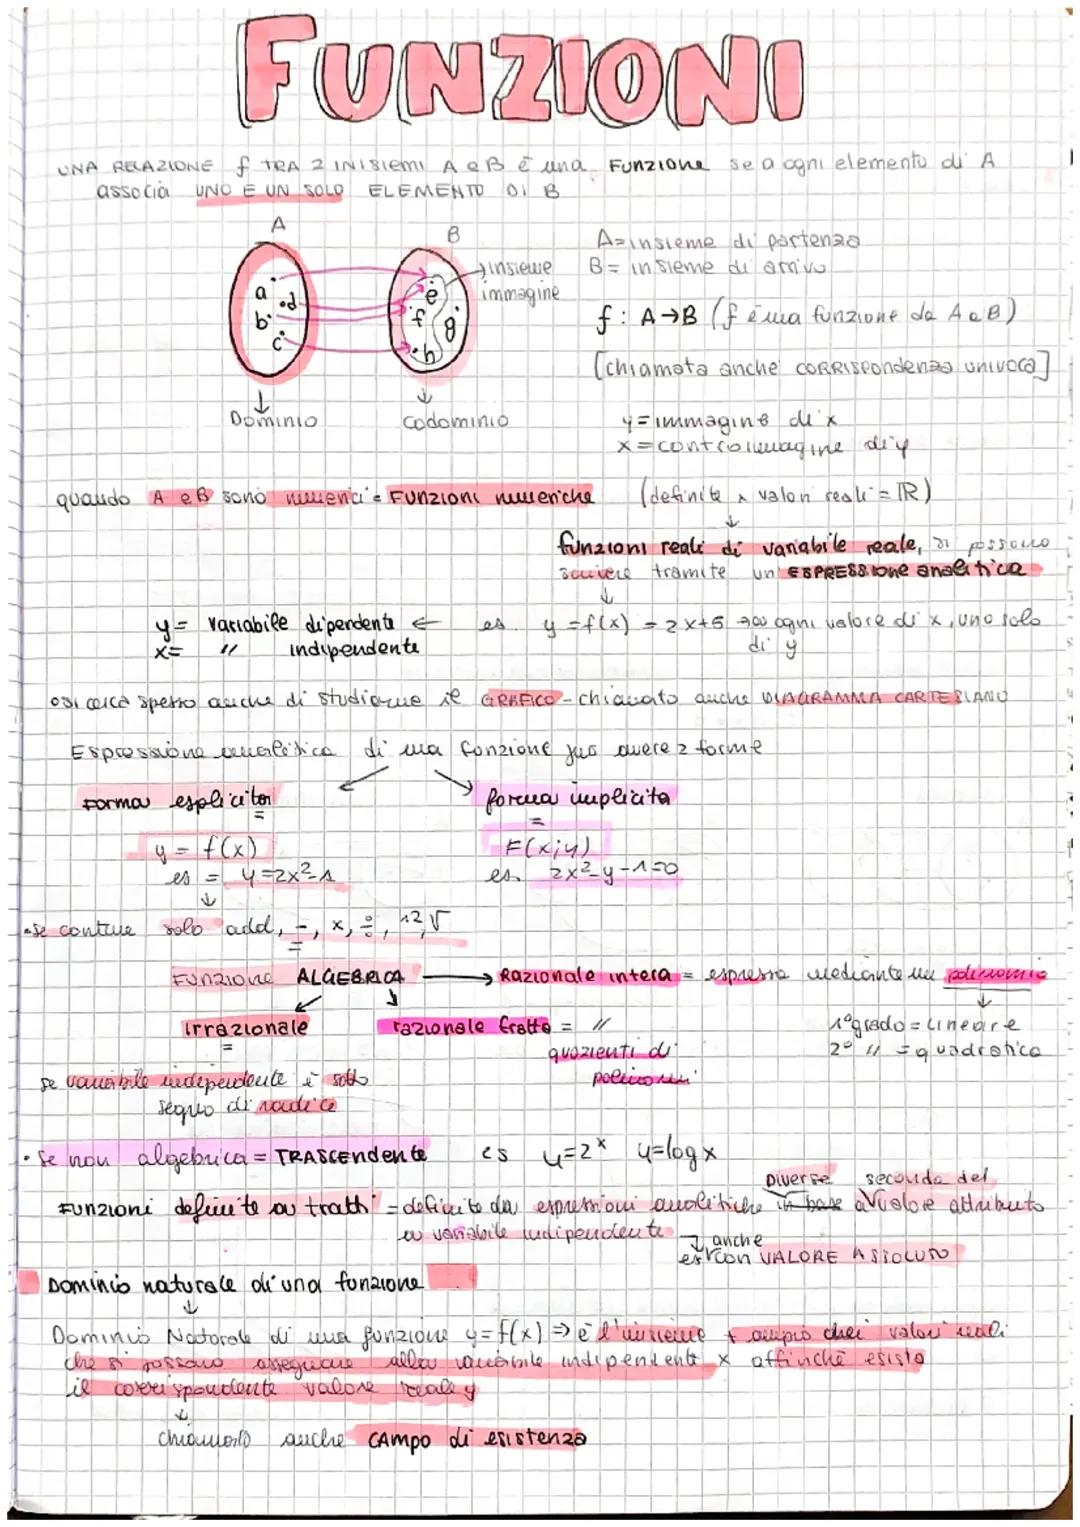 FUNZIONI
UNA RELAZIONE f TRA 2 INISIEMI A e B è una FUNZIONE se a ogni elemento di A
associa UNO E UN SOLO ELEMENTO DI B
A
B
a
b
d
c
e
f
g
h
insieme
immagine
Dominio
codominio
A=insieme di partenza
B= insieme di arrivo
f: A→B (f è una funzione da A a B)
[chiamata anche CORRISPONDENZA UNIVOCA]
y=immagine di x
x=controimmagine di y
quando A e B sono numerici = FUNZIONI numeriche (definite a valori reali = ℝ)
funzioni reali di variabile reale, si possono
scrivere tramite un ESPRESSIONE analitica
y= variabile dipendente ← es. y=f(x) = 2x+5 → ad ogni valore di x, uno solo
di y
x= " indipendente
si cerca spesso anche di studiarne il GRAFICO - chiamato anche DIAGRAMMA CARTESIANO
Espressione analitica di una funzione può avere 2 forme
forma esplicita
=
y = f(x)
es = y=2x²-1
forma implicita
=
F(x;y)
es. 2x²-y-1=0
• se contiene solo add, -, x, ÷, ^2, √
FUNZIONE ALGEBRICA → Razionale intera = espressa mediante un polinomio
1° grado = lineare
2° " = quadratica
irrazionale
=
razionale fratta = "
quozienti di
polinomi
se variabile indipendente è sotto
segno di radice
• se non algebrica = TRASCENDENTE es y=2ˣ y=log x
FUNZIONI definite a tratti = definite da espressioni analitiche diverse in base a seconda del valore attribuito
a variabile indipendente
es anche con VALORE ASSOLUTO
Dominio naturale di una funzione
Dominio Naturale di una funzione y=f(x) ⇒ è l'insieme + ampio dei valori reali
che si possono assegnare alla variabile indipendente x affinchè esista
il corrispondente valore reale y
chiamato anche CAMPO di esistenza